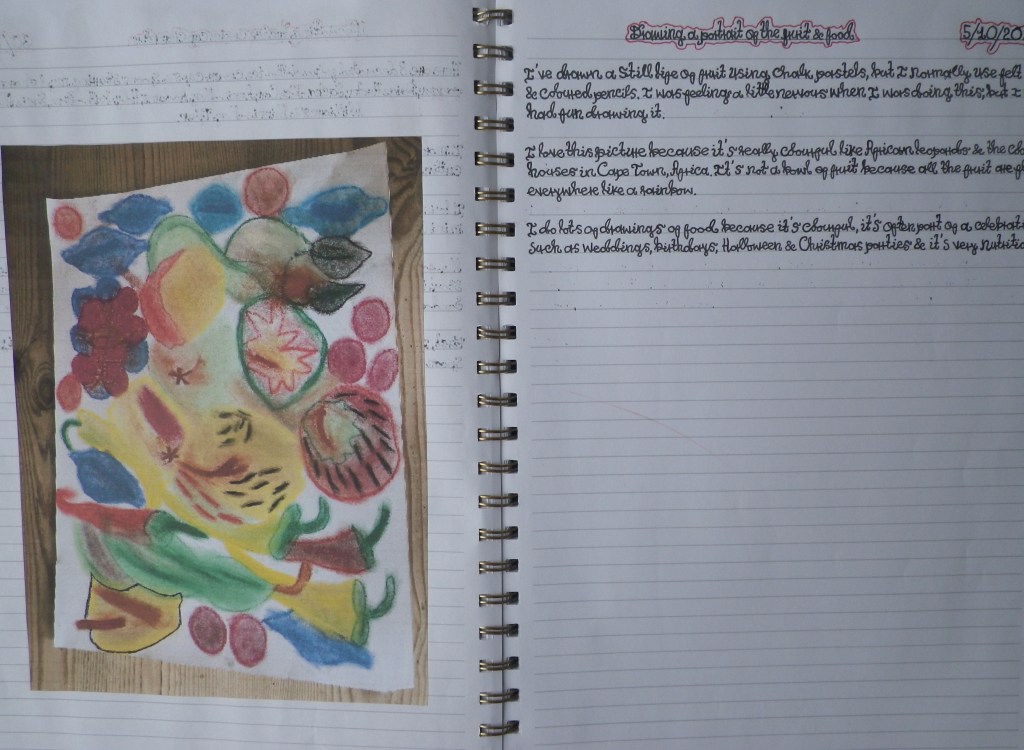 Drawing a portrait of the fruit & food
5/10/20
I've drawn a still life of fruit using chalk, pastels, but I normally use felt
& coloured pencils. I was feeling a little nervous when I was doing this, but I
had fun drawing it.
I love this picture because it's really colourful like African leopards & the
houses in Cape Town, Africa. It's not a bowl of fruit because all the fruit are
everywhere like a rainbow.
I do lots of drawings of food, because it's colourful, it's often part of a
such as weddings, birthdays, Halloween & Christmas parties & it's very